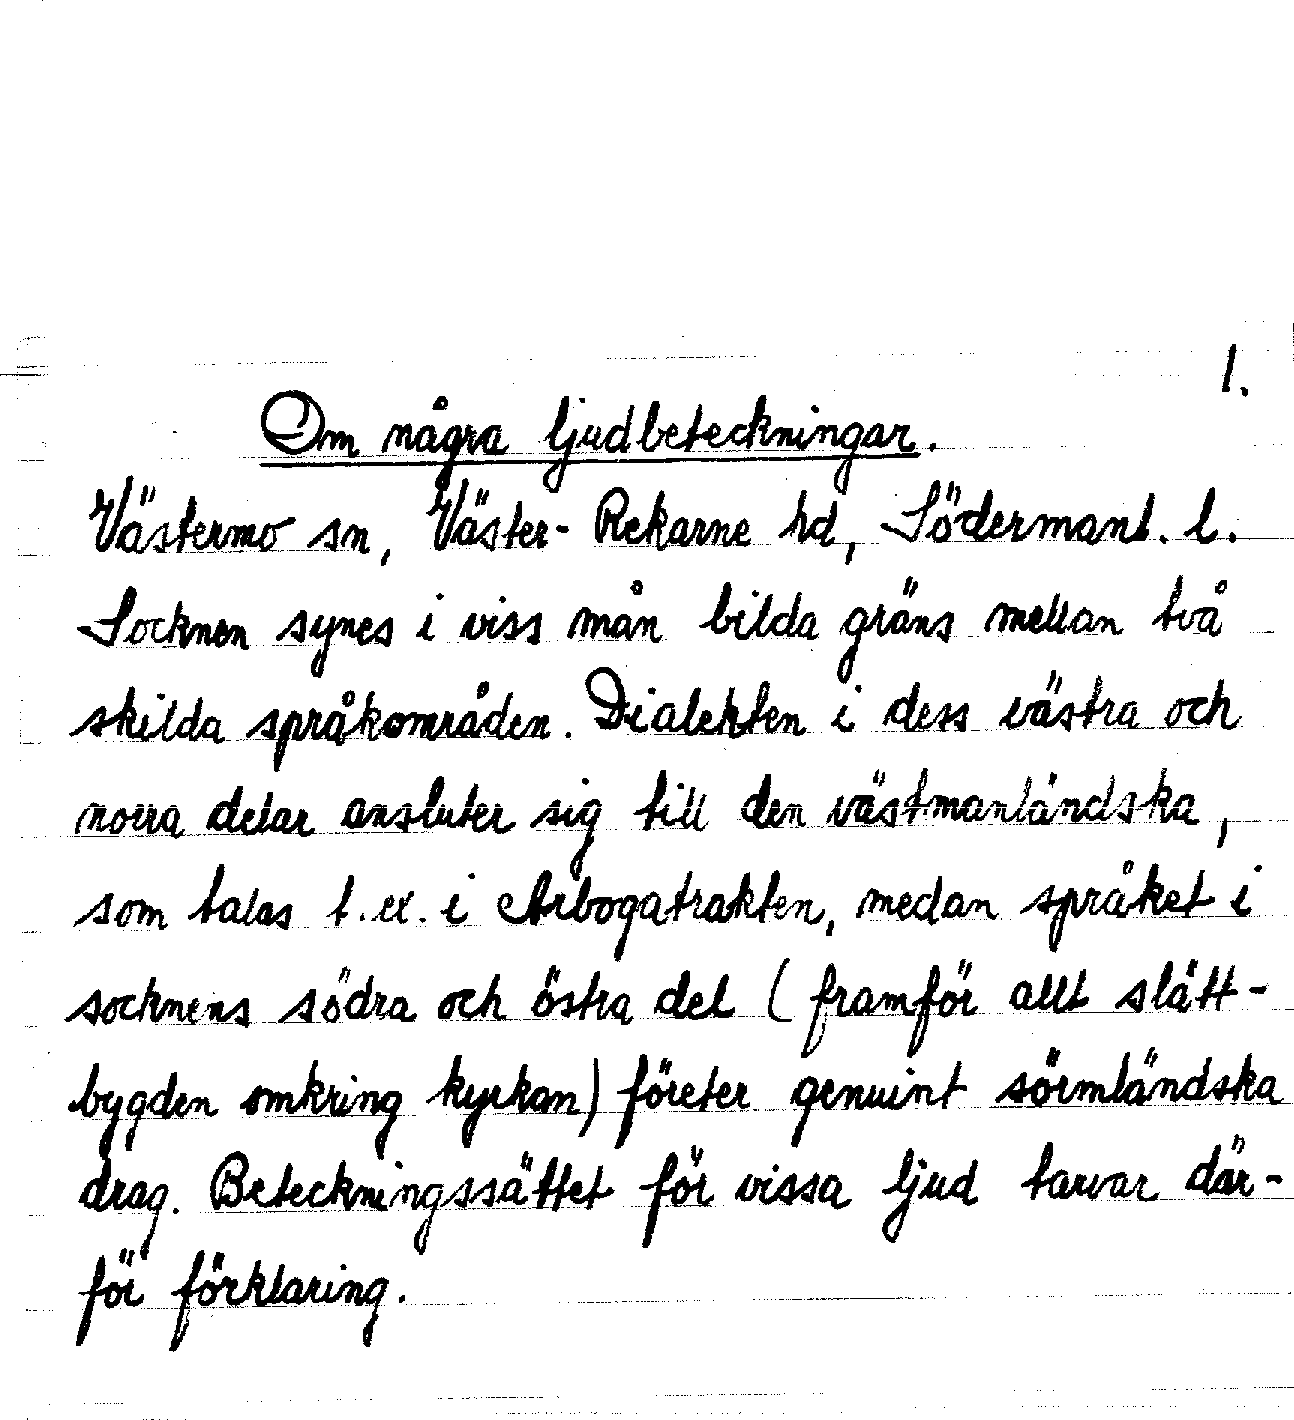 1.
Om några ljudbeteckningar.
Västermo sn, Väster-Rekarne hd, Södermanl. l.
Socknen synes i viss mån bilda gräns mellan två
skilda språkområden. Dialekten i dess västra och
norra delar ansluter sig till den västmanländska,
som talas t.ex. i Arbogatrakten, medan språket i
socknens södra och östra del (framför allt slätt-
bygden omkring kyrkan) företer genuint sörmländska
drag. Beteckningssättet för vissa ljud tarvar där-
för förklaring.